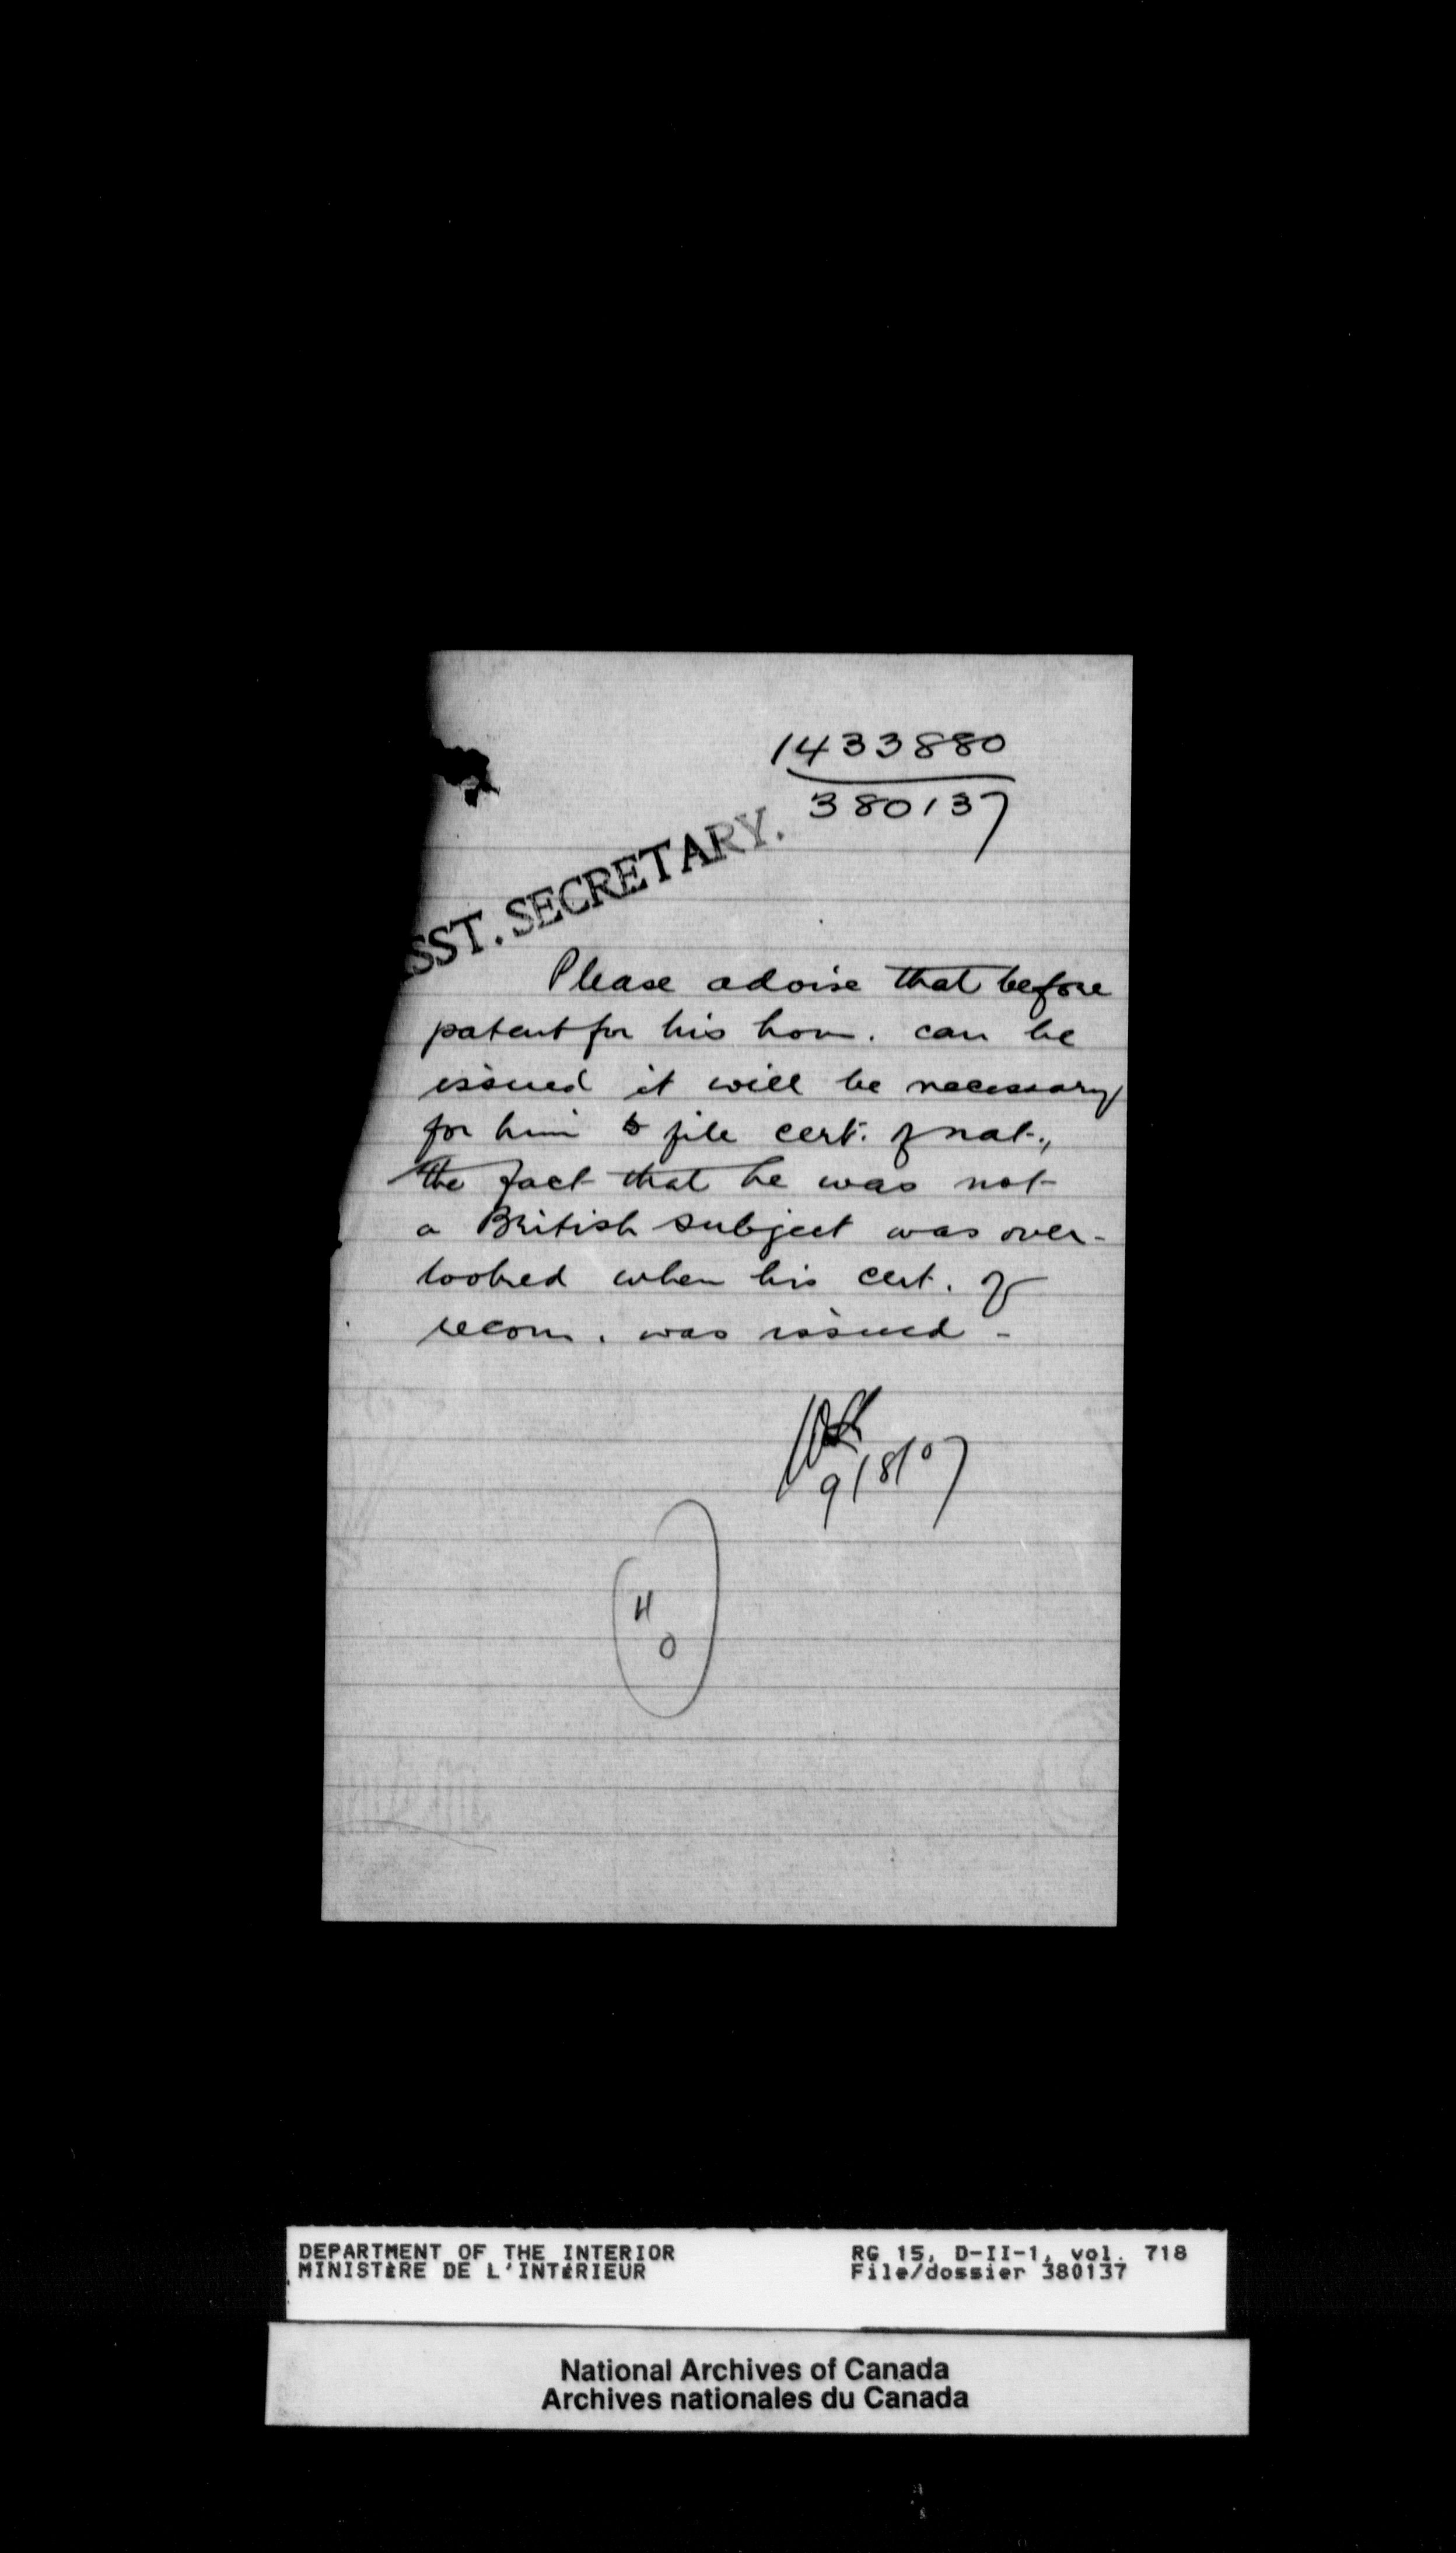 1433880
380137
SST. SECRETARY.
Please advise that before
patent for his hom. can be
issued it will be necessary
for him to file cert. of nat.,
the fact that he was not
a British subject was over-
looked when his cert. of
recom. was issued -
9/8/07
H
O
DEPARTMENT OF THE INTERIOR RG 15, D-II-1, vol. 718
MINISTÈRE DE L'INTÉRIEUR File/dossier 380137
National Archives of Canada
Archives nationales du Canada